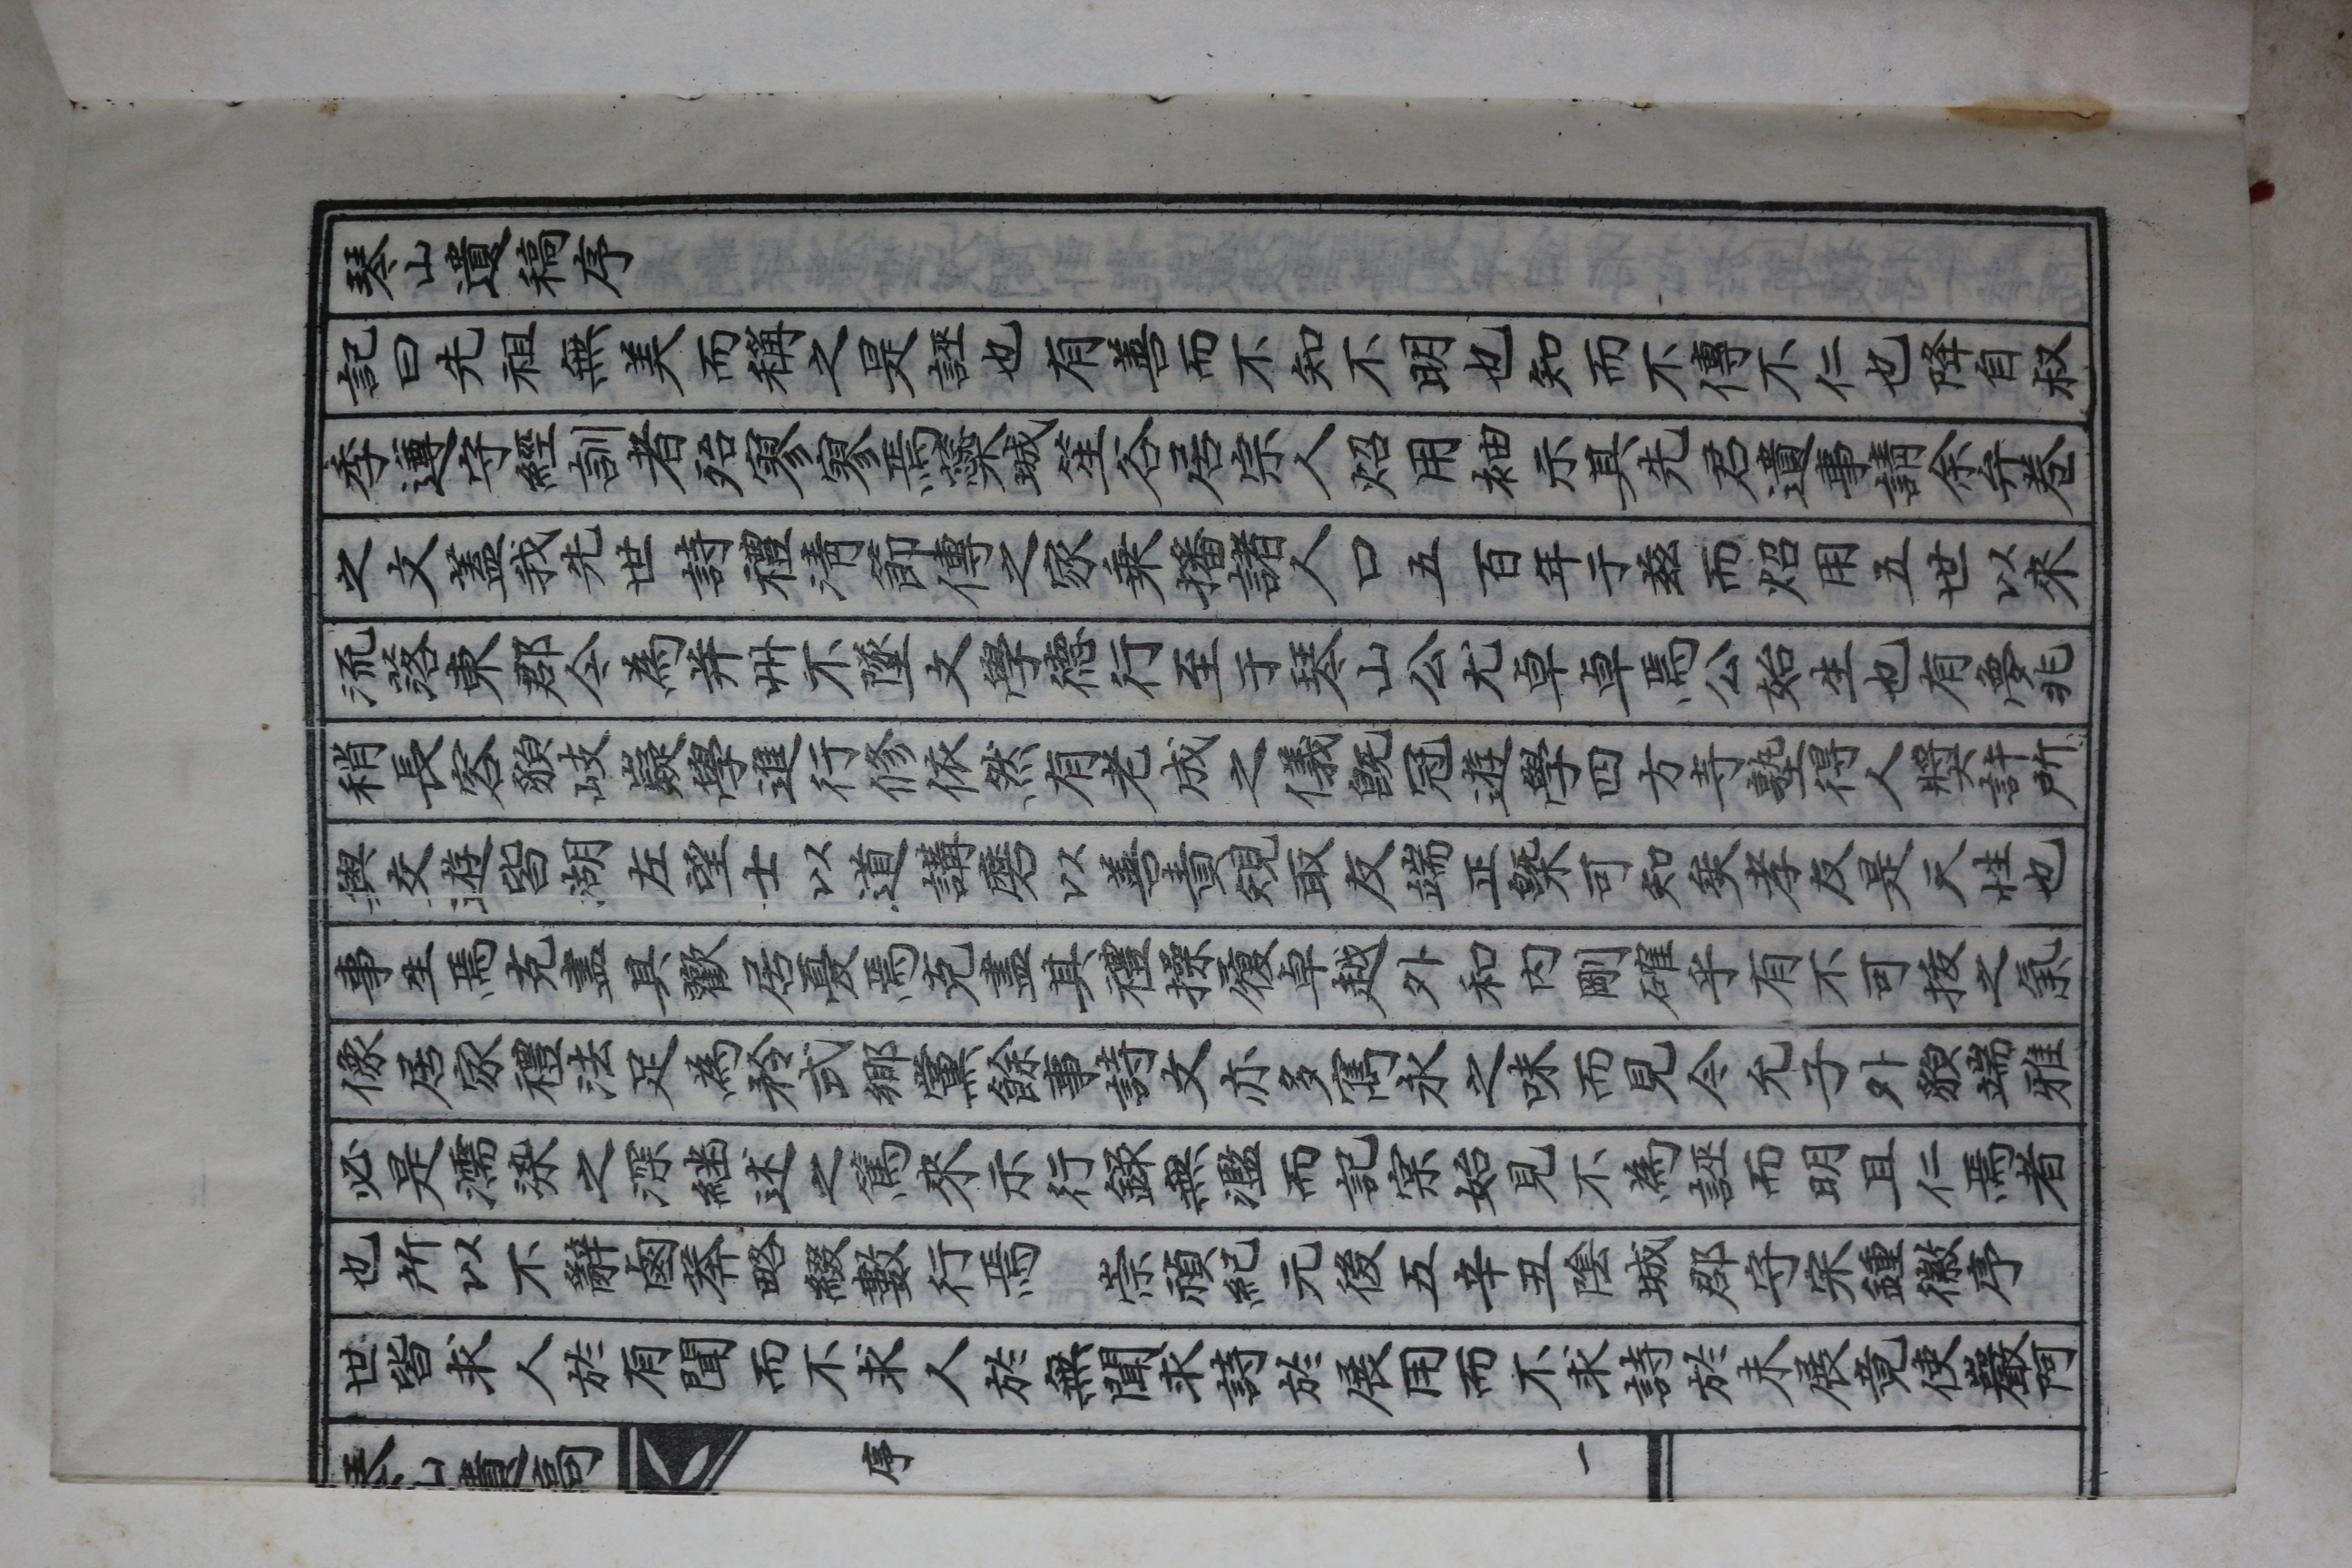 琴山遺稿序
記曰先祖無美而稱之是誣也有善而不知不明也知而不傳不仁也降自叔
季遵守經訓者殆寥寥焉漆城筌谷居宗人炤用袖示其先君遺事請余弁卷
之文蓋我先世詩禮清節傳之家乘播諸人口五百年于玆而炤用五世以來
流落東郡仝爲幷州不墜文學德行至于琴山公尤卓卓焉公始生也有夢兆
稍長容貌岐嶷學進行修依然有老成之儀旣冠遊學四方庠塾得人奬詡所
與交遊皆湖左望士以道講磨以善責勉取友端正槩可知矣孝友是天性也
事生焉克盡其歡居憂焉克盡其禮操履卓越外和內剛確乎有不可拔之氣
像居家禮法足爲矜式鄕黨餘事詩文亦多雋永之味而見今允子外貌端雅
必是濡染之深繼述之篤來示行錄無濫而記宲始見不爲誣而明且仁焉者
也所以不辭鹵莽略綴數行焉 崇禎紀元後五辛丑陰城郡守宋鍾徽序
世皆求人於有聞而不求人於無聞求詩於展用而不求詩於未展竟使巖阿
琴山遺稿 序 一